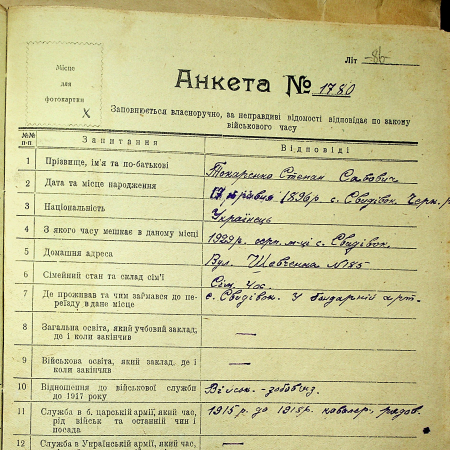 Літ -86
Місце
для
фотокартки
X
Анкета № 1780
Заповнюється власноручно, за неправдиві відомості відповідає по закону
військового часу
№№
п-п
Запитання
Відповіді
1 Прізвище, ім'я та по-батькові Токаренко Степан Савович
2 Дата та місце народження 1896р. с. Свидівок. Черк.
3 Національність Українець
4 З якого часу мешкає в даному місці 1929р. с. Свидівок.
5 Домашня адреса Вул. Шевченка №85
6 Сімейний стан та склад сім'ї Сім. Чол.
7 Де проживав та чим займався до пе-
реїзду в дане місце с. Свидівок. У бондарній арт.
8 Загальна освіта, який учбовий заклад,
де і коли закінчив —
9 Військова освіта, який заклад, де і
коли закінчив —
10 Відношення до військової служби
до 1917 року Військ.-зобов'яз.
11 Служба в б. царській армії, який час,
рід військ та останній чин і
посада 1915р. до 1915р. кавалер, рядов.
12 Служба в Українській армії, який час, —